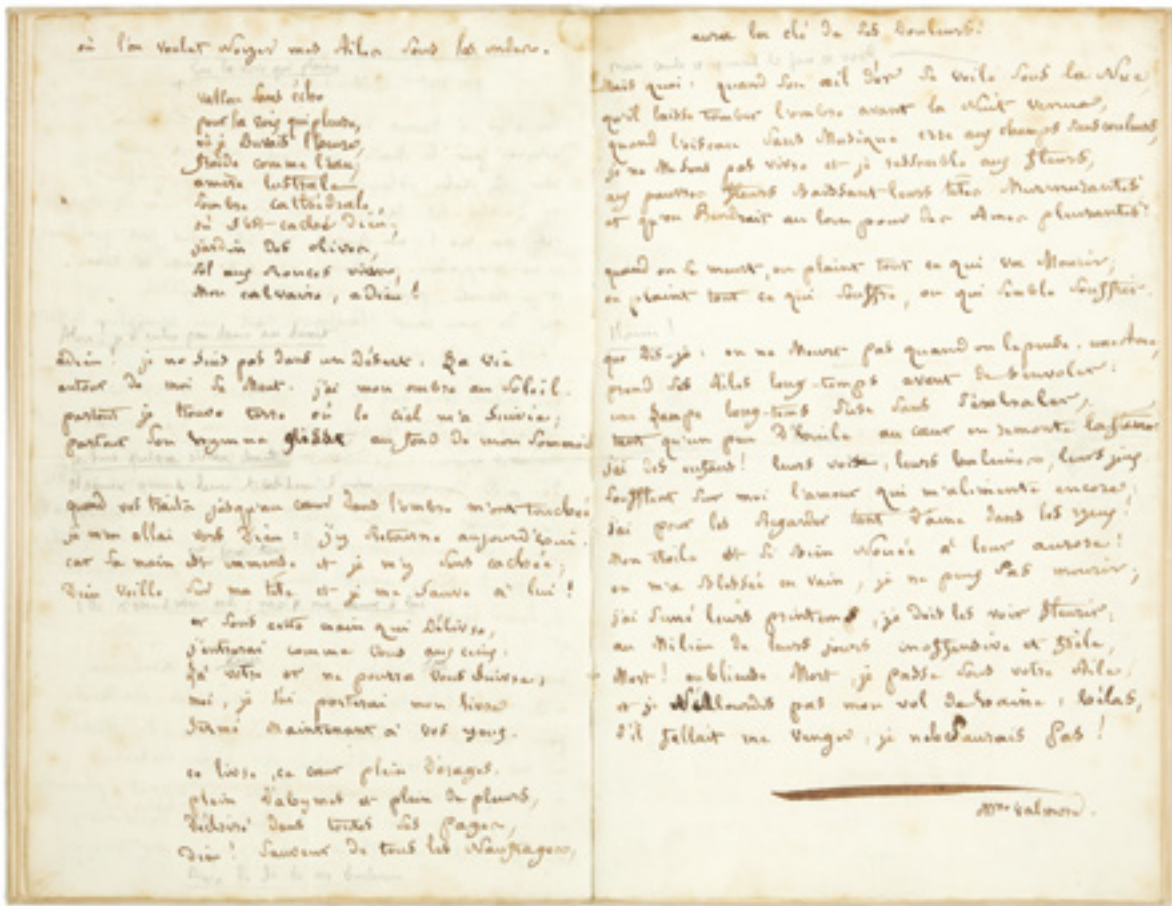 où l'on voulut noyer mes Ailes sous les ondes.
vallon sans écho
pour la voix qui pleure,
où j'Buvais l'heure,
froide comme l'eau,
amère lustrale
sombre cathédrale
où s'est caché Dieu;
jardin des olives,
sol aux Ronces vives,
Mon calvaire, adieu!
adieu! je ne suis pas dans un Désert. La vie
autour de moi se Meut. j'ai mon ombre au Soleil.
partout je trouve terre où le ciel m'a Suivie;
partout son hymne glisse au fond de mon Sommeil
quand vos traits jusqu'au cœur dans l'ombre m'ont touchée
je m'en allai vers Dieu: j'y Retourne aujourd'hui.
car sa main est immense et je m'y suis cachée;
Dieu veille sur ma tête et je me sauve à lui!
or sous cette main qui Délivre,
j'entrerai comme vous aux cieux.
Là votre or ne pourra vous suivre;
moi, je lui porterai mon livre
fermé maintenant à vos yeux.
ce livre, ce cœur plein d'orages.
plein d'abymes et plein de pleurs,
Déchiré dans toutes ses pages,
Dieu! Sauveur de tous les Naufrages,
aura la clé de ses Douleurs!
Mais quoi: quand son œil d'or se voile sous la Nue
qu'il laisse tomber l'ombre avant la Nuit venue,
quand l'oiseau sans Musique erre aux champs sans couleurs,
je ne me sens pas vivre et je ressemble aux fleurs,
aux pauvres fleurs Baissant leurs têtes Murmurantes
et qu'on Prendrait au loin pour des Ames pleurantes!
quand on se meurt, on plaint tout ce qui va Mourir;
on plaint tout ce qui souffre, ou qui semble souffrir.
Mourir!
que Dis-je: on ne Meurt pas quand on le pense. une Ame,
prend ses Ailes long-temps avant de s'envoler:
une Lampe long-tems s'use sans s'exhaler,
tant qu'un peu d'huile au cœur en remonte la flamme
j'ai des enfans! leurs voix, leurs haleines, leurs jeux
soufflent sur moi l'amour qui m'alimente encore;
j'ai pour les Regarder tant d'âme dans les yeux!
Mon étoile est si Bien Nouée à leur aurore!
on m'a Blessée en vain, je ne peux Pas mourir;
j'ai semé leurs printems, je dois les voir fleurir;
au Milieu de leurs jours inoffensive et frêle,
Mort! oublieuse Mort, je passe sous votre Aile,
et je N'Alourdis pas mon vol de haine: hélas,
s'il fallait me venger, je ne le Saurais Pas!
Mme valmore.